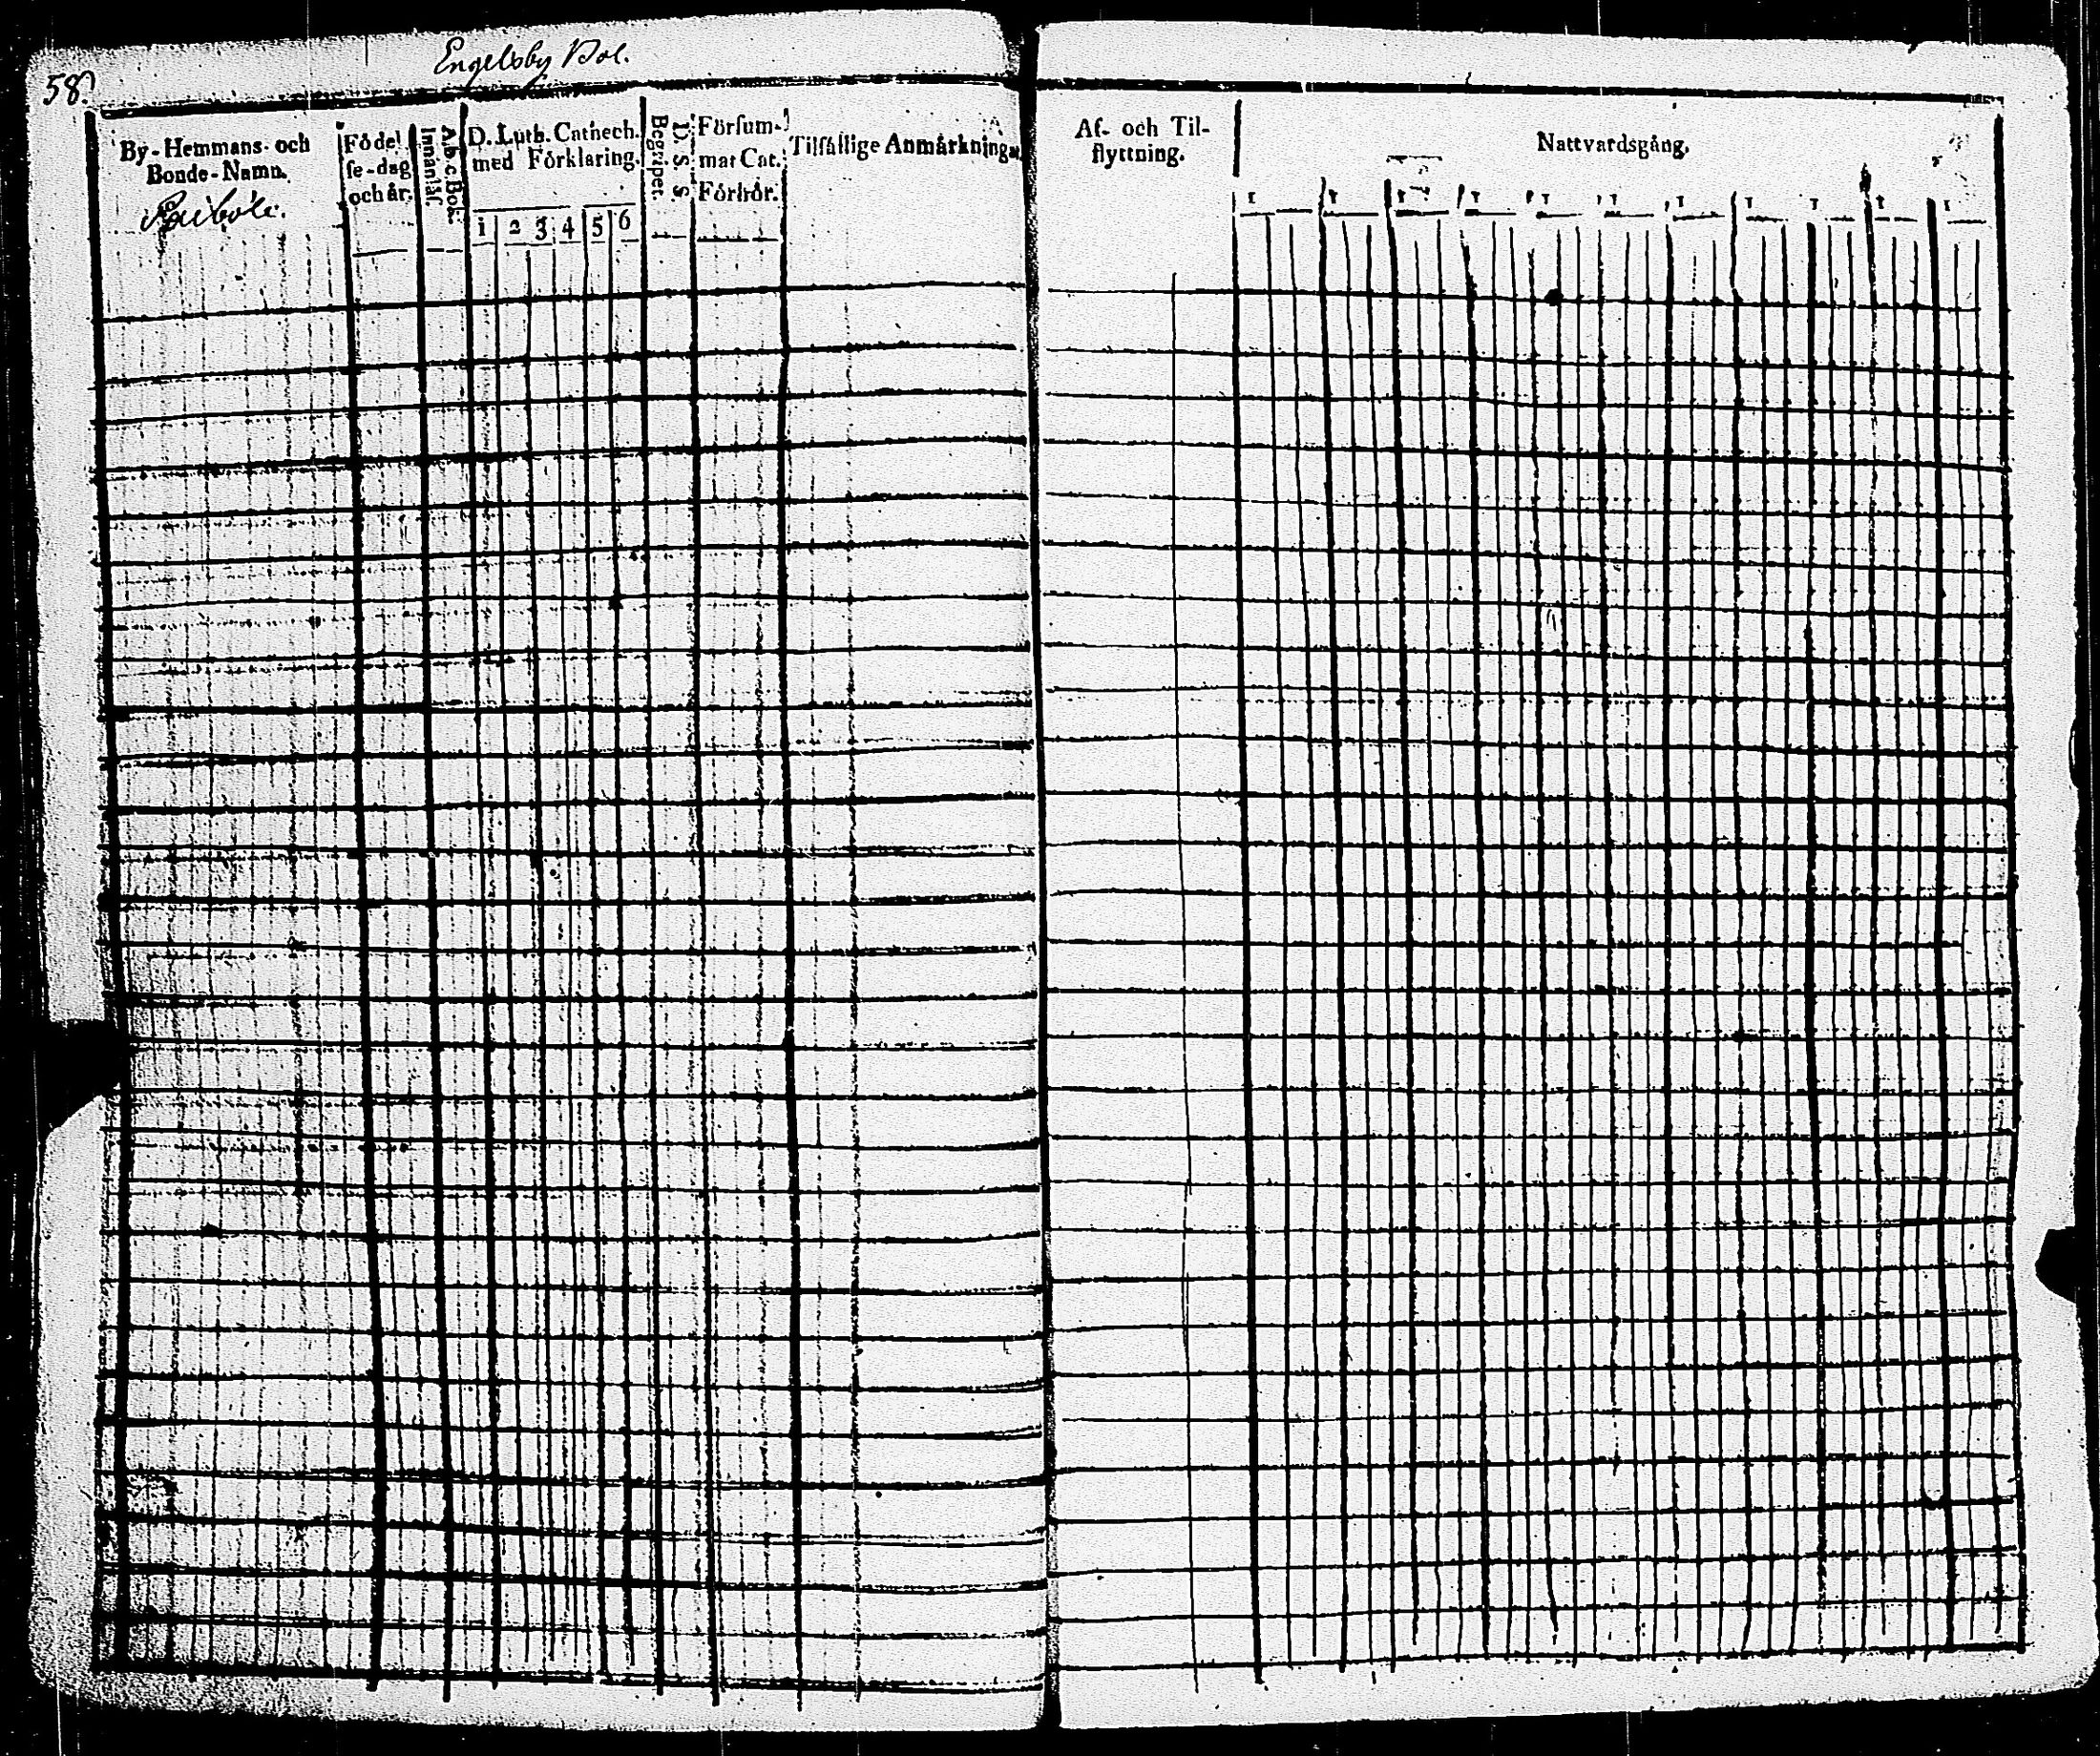 Engelsby Bol.
58.
By-Hemmans- och
Bonde-Namn.
Födel
se-dag
och år.
A.b.c.Bok
Innanläs.
D. Luth. Cathech.
med Förklaring.
1 2 3 4 5 6
D. S. S.
Begriper.
Försum-
mat Cat.
Förhör.
Tilfällige Anmärkningar
Af- och Til-
flyttning.
Nattvardsgång.